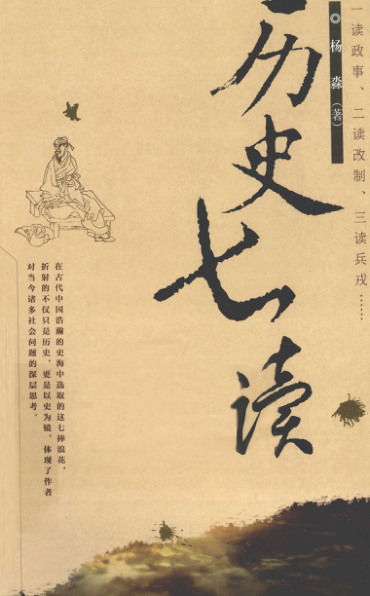 一读政事、二读改制、三读兵戎……
◎ 杨淼（著）
历史七读
在古代中国浩瀚的史海中选取的这七捧浪花，
折射的不仅只是历史，更是以史为镜，体现了作者
对当今诸多社会问题的深层思考。